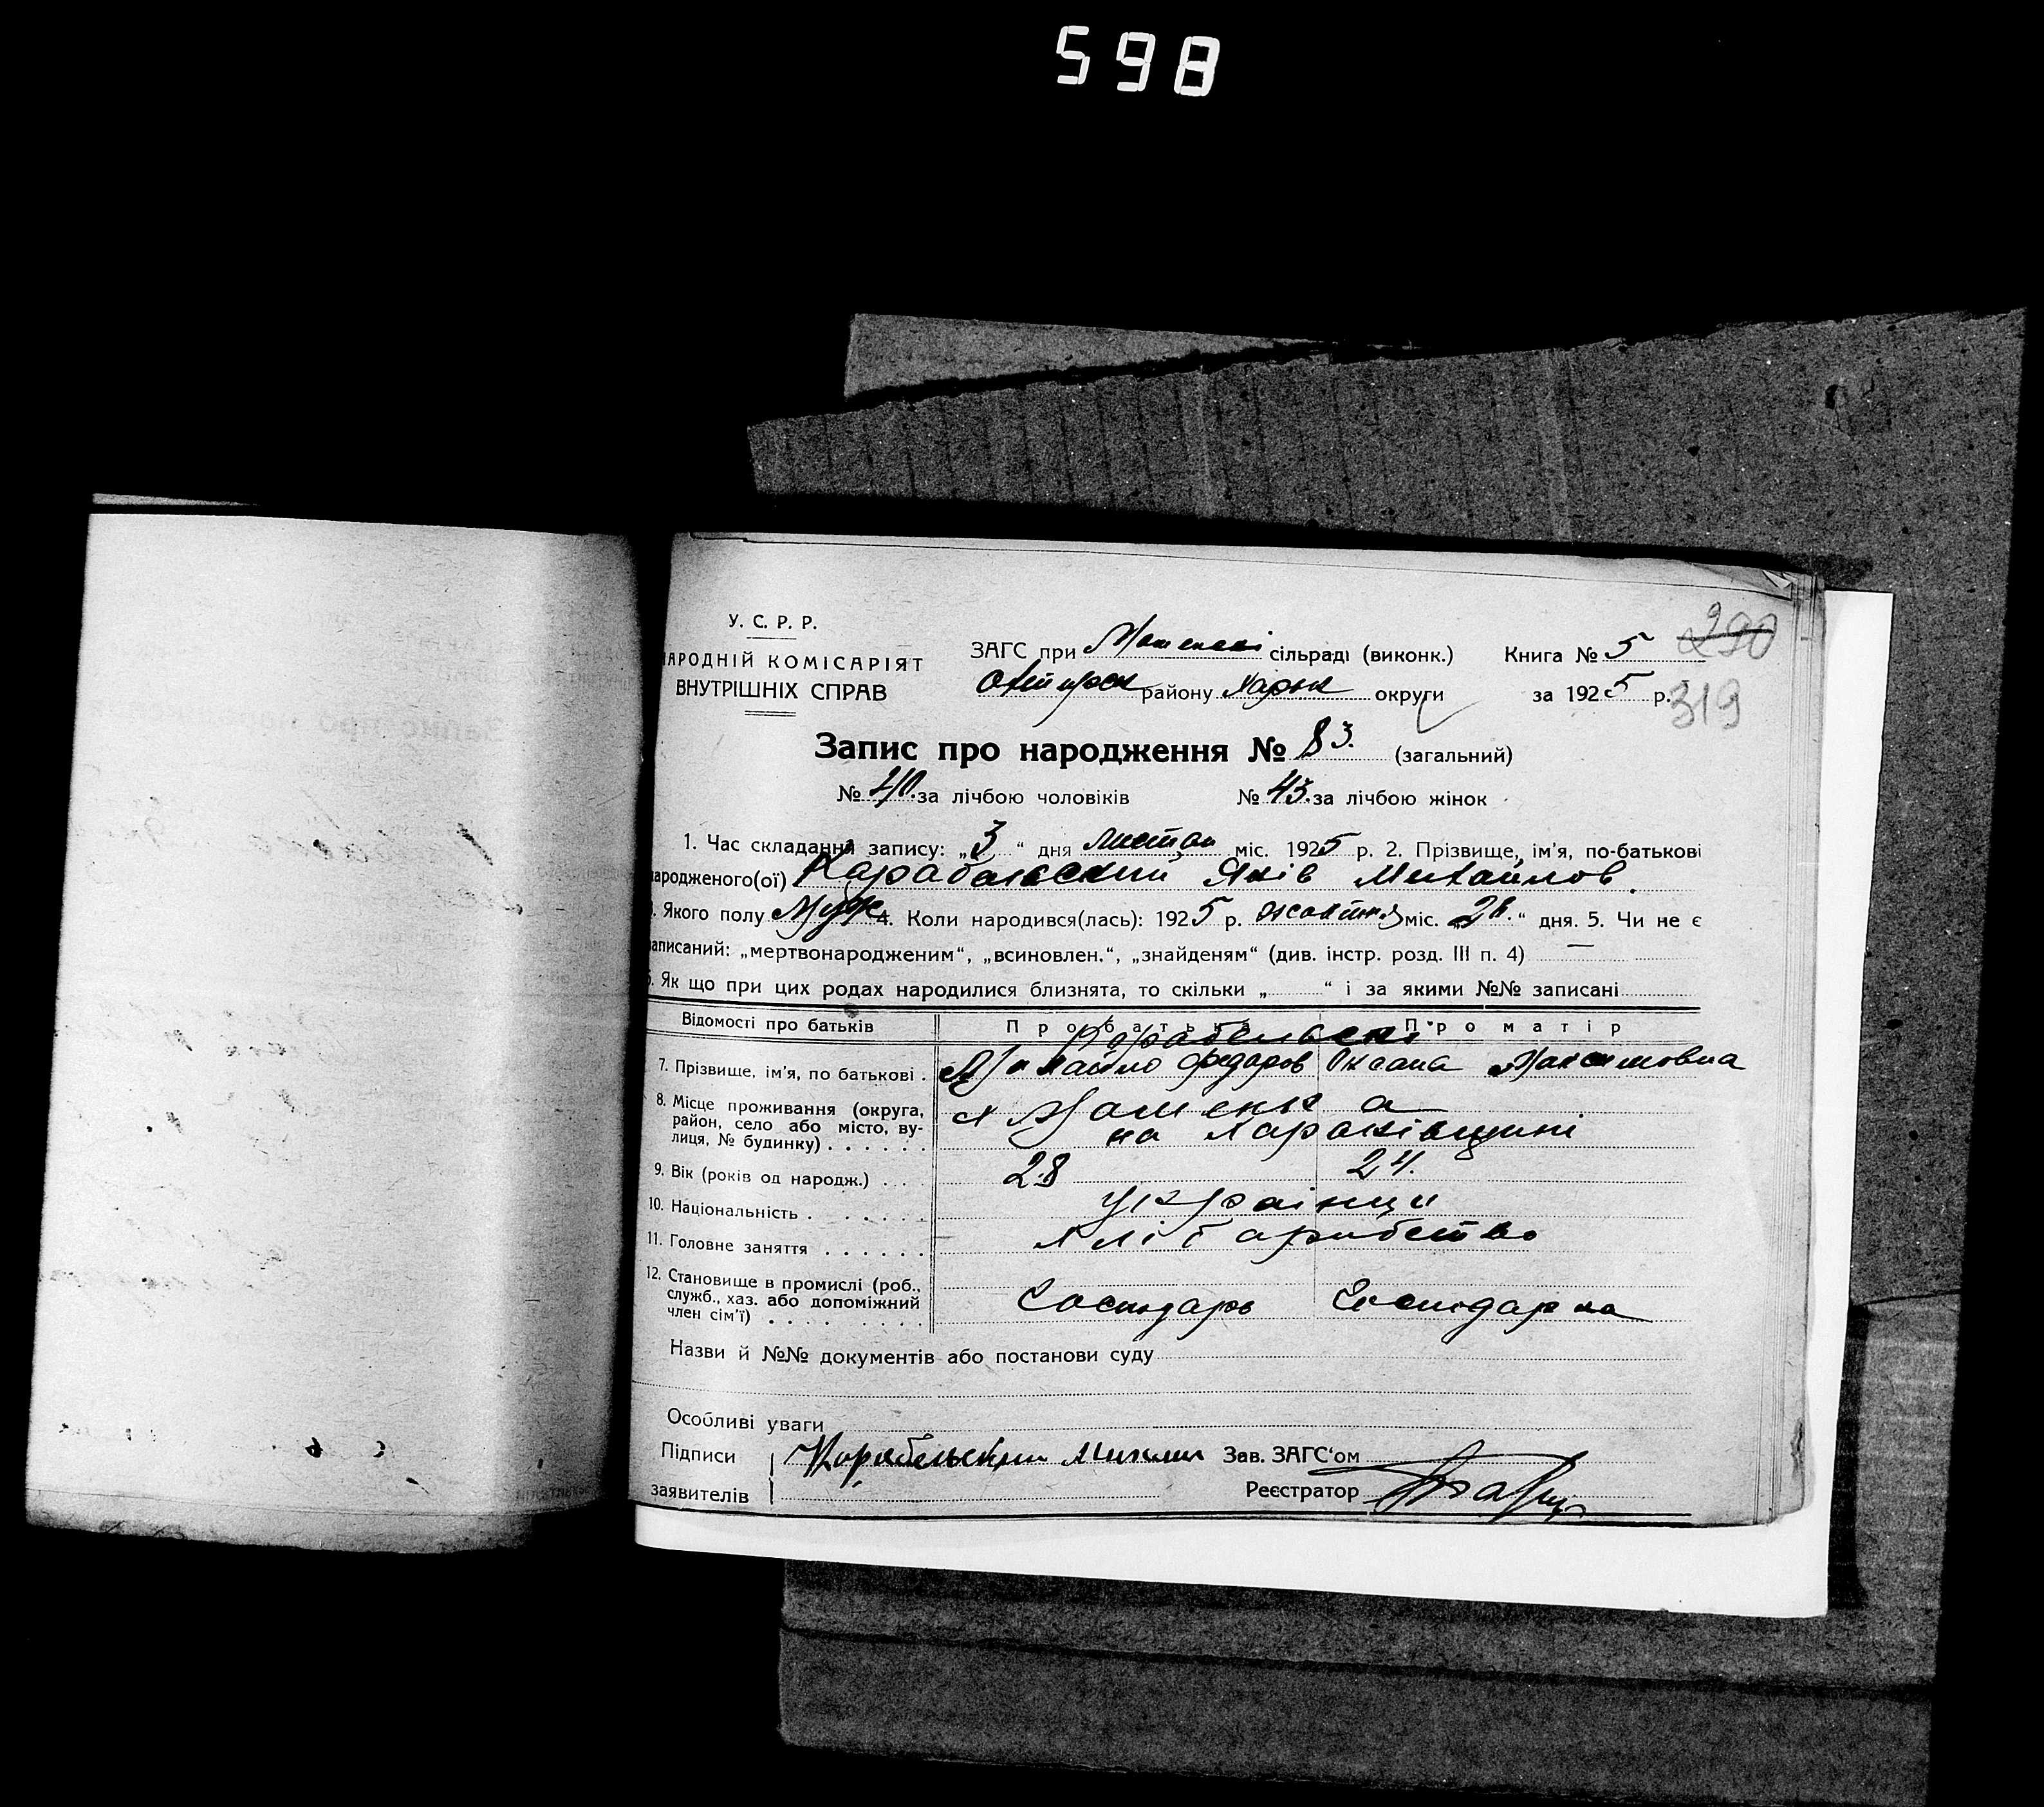 598
У. С. Р. Р.
НАРОДНІЙ КОМІСАРІЯТ
ВНУТРІШНІХ СПРАВ
ЗАГС при сільраді (виконк.)
району Харьк округи
Книга № 5
290
за 1925 р.
319
Запис про народження № 83. (загальний)
№ 40. за лічбою чоловіків № 43. за лічбою жінок
1. Час складання запису: „3“ дня листоп міс. 1925 р. 2. Прізвище, ім'я, по-батькові
народженого(ої) Карабельский Яків Михайлов.
3. Якого полу Муж. 4. Коли народився(лась): 1925 р. жовтня міс. „28.“ дня. 5. Чи не є
записаний: „мертвонародженим“, „всиновлен.“, „знайденям“ (див. інстр. розд. III п. 4) —
6. Як що при цих родах народилися близнята, то скільки „ “ і за якими №№ записані
Відомості про батьків Про батька Про матір
Корабельскі
7. Прізвище, ім'я, по батькові . Михайло Федоров Оксана Максимовна
8. Місце проживання (округа,
район, село або місто, ву-
лиця, № будинку) . . . . . .
х Мошенка
на Харьківщині
9. Вік (років од народж.) . . . 28 24.
10. Національність . . . . . . українци
11. Головне заняття . . . . . . хліборобство
12. Становище в промислі (роб.,
служб., хаз. або допоміжний
член сім'ї) . . . . . . . .
Господарь Господарка
Назви й №№ документів або постанови суду
Особливі уваги
Підписи Корабельский Михаил Зав. ЗАГС'ом
заявителів Реєстратор